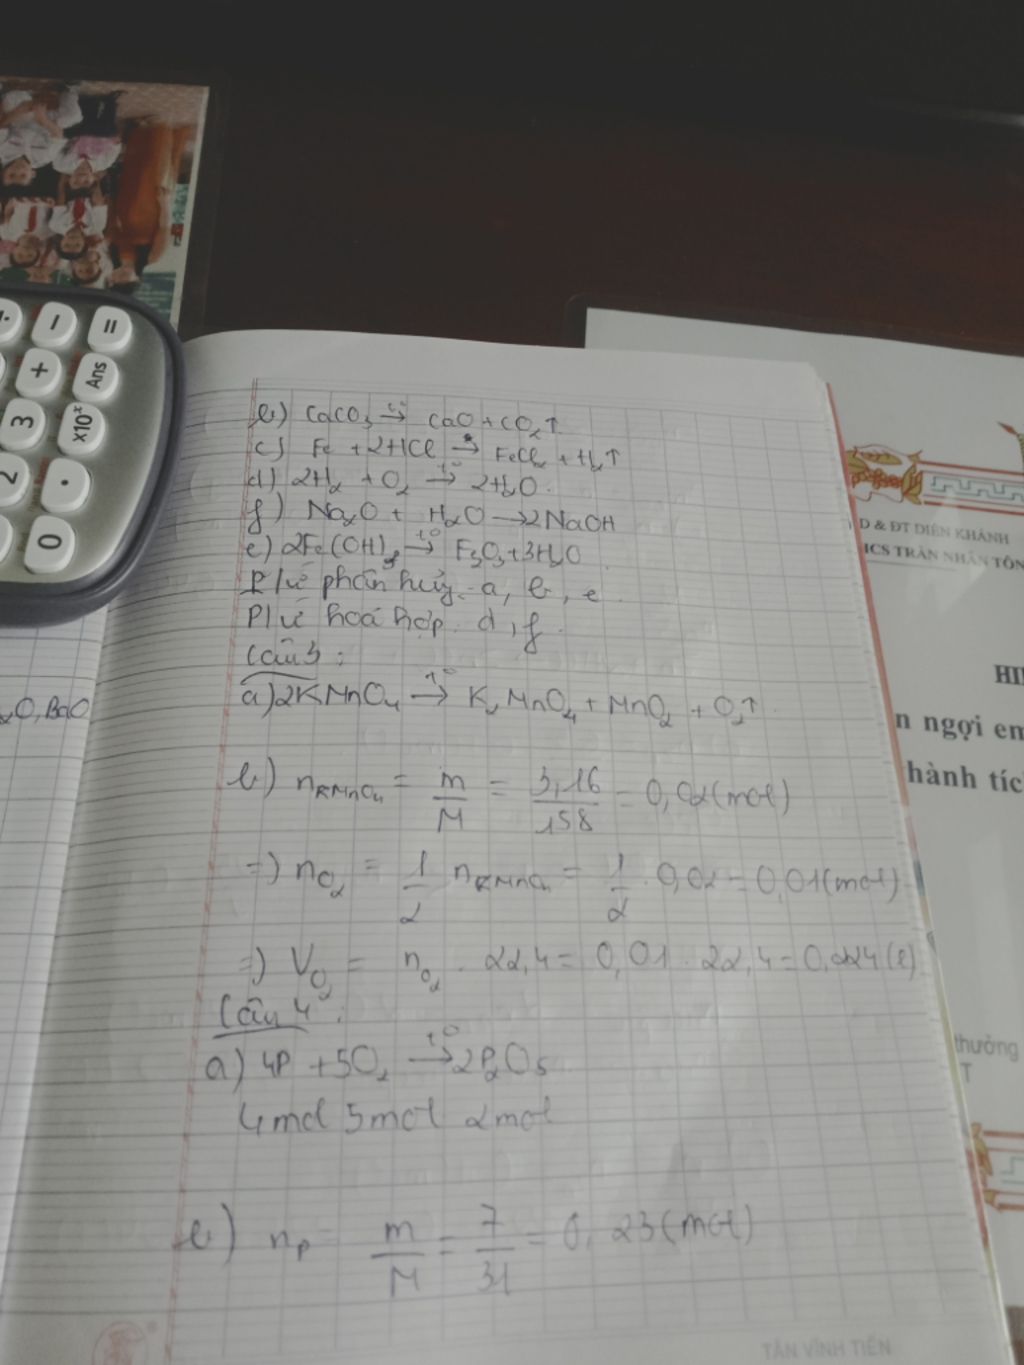 b) CaCO3 t°→ CaO + CO2↑
c) Fe + 2HCl → FeCl2 + H2↑
d) 2H2 + O2 t°→ 2H2O.
f) Na2O + H2O → 2NaOH
e) 2Fe(OH)3 t°→ F2O3 + 3H2O
P/ư phân hủy: a, b, e.
P/ư hoá hợp: d, f.
Câu 3:
a) 2KMnO4 t°→ K2MnO4 + MnO2 + O2↑
b) nKMnO4 = m/M = 3,16/158 = 0,02 (mol)
=) nO2 = 1/2 nKMnO4 = 1/2 . 0,02 = 0,01 (mol)
=) VO2 = nO2 . 22,4 = 0,01 . 22,4 = 0,224 (l)
Câu 4:
a) 4P + 5O2 t°→ 2P2O5
4mol 5mol 2mol
b) nP = m/M = 7/31 = 0,23 (mol)
2O, BaO
÷ − =
+ Ans
3 ×10ˣ
2 .
0
D & ĐT DIÊN KHÁNH
ICS TRẦN NHÂN TÔN
HI
n ngợi em
hành tíc
thưởng
T
TÂN VĨNH TIẾN